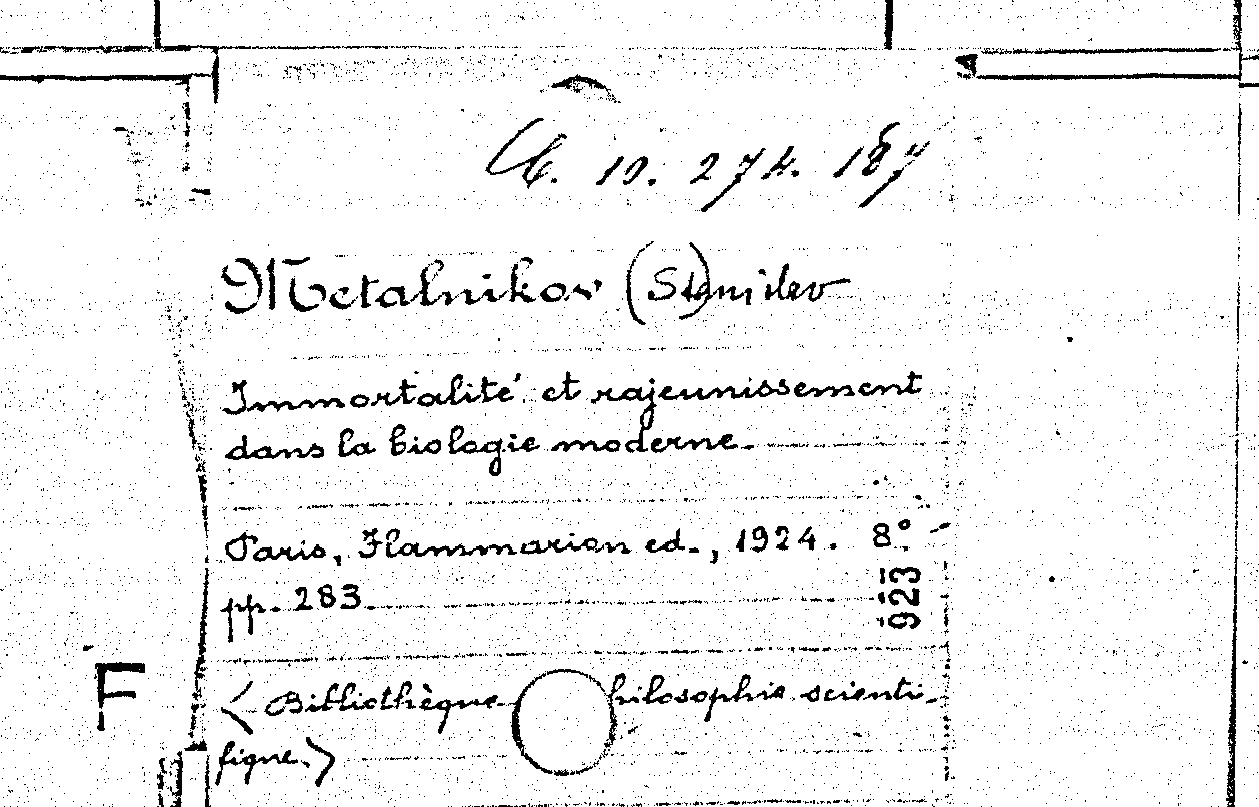 10. 274. 187
Metalnikov (St)anislav
Immortalité et rajeunissement
dans la biologie moderne.
Paris, Flammarion ed., 1924. 8°
pp. 283.
923
< Bibliothèque hilosophie scienti-
fique. >
F